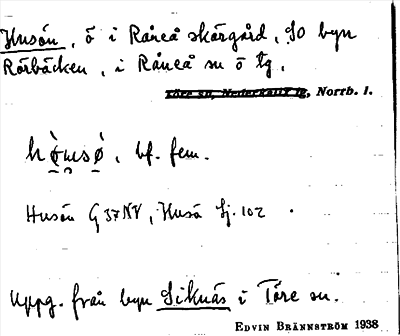 Husön, ö i Råneå skärgård, SO byn
Rörbäcken, i Råneå sn ö tg,
Töre sn, Nederkalix tg, Nortb. l.
bf. fem.
Husön G 37 NV, Husö Sj. 102
Uppg. från byn Siknäs i Töre sn.
EDVIN BRÄNNSTRÖM 1938